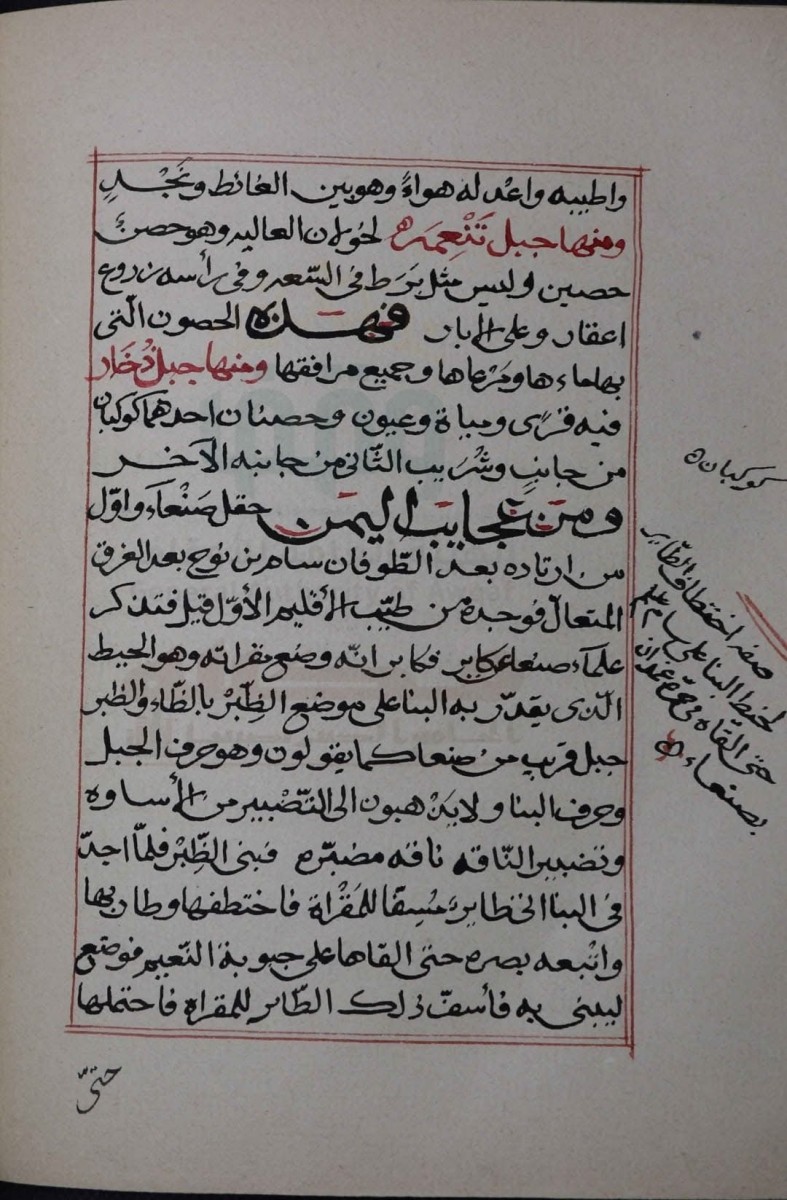 واطيبه واعدله هواءً وهوبين الغائط ونَجْدٍ
ومنها جبل تَنْعِمَه لخولان العاليه وهو حصنٌ
حصين وليس مثل بَرَط فى السّعه وفى رأسه زروع
اعقار وعلى الابار فهذه الحصون الّتى
بها ماءها ومَرْعاها وجميع مرافقها ومنها جبل ذُخَار
فيه قرًى ومياة وعيون وحصنان احدهما كوكبان
من جانبٍ وشُرَيب الثّانى من جانبه الآخر
ومن عجايب اليمن حقل صَنْعاَء واوّل
من ارتاده بعد الطّوفان سام بن نوح بعد الغرق
المتعال فوجده من طيّب الأقليم الأوّل قيل فتذكر
علمآء صنعا عن كابرٍ فكابر انّه وضع مقرانه وهو الخيط
الّذى يقدّر به البنا على موضع الظِّبْر بالظّاء والظبر
جبل قريب من صنعا كما يقولون وهو حرف الجبل
وحرف البنا ولا يذهبون الى التّضبير من الأساوه
وتضبير النّاقه ناقه مضبّره فبنى الظِّبْر فلمّا اجدّ
فى البنا اتى طايرٌ مُسِفًّا للمَقْراة فاختطفها وطار بها
واتْبعه بصره حتى القاها على جبوبة النّعيم فوضع
ليبنى به فأسفّ ذلك الطّاير للمقراة فاحتملها
حتىّ
كوكبان ه
صفه اختطاف الطّاير
لخيط البنا على سام علم
حتى القاه فى حرّة غمدان
بصنعاء ه